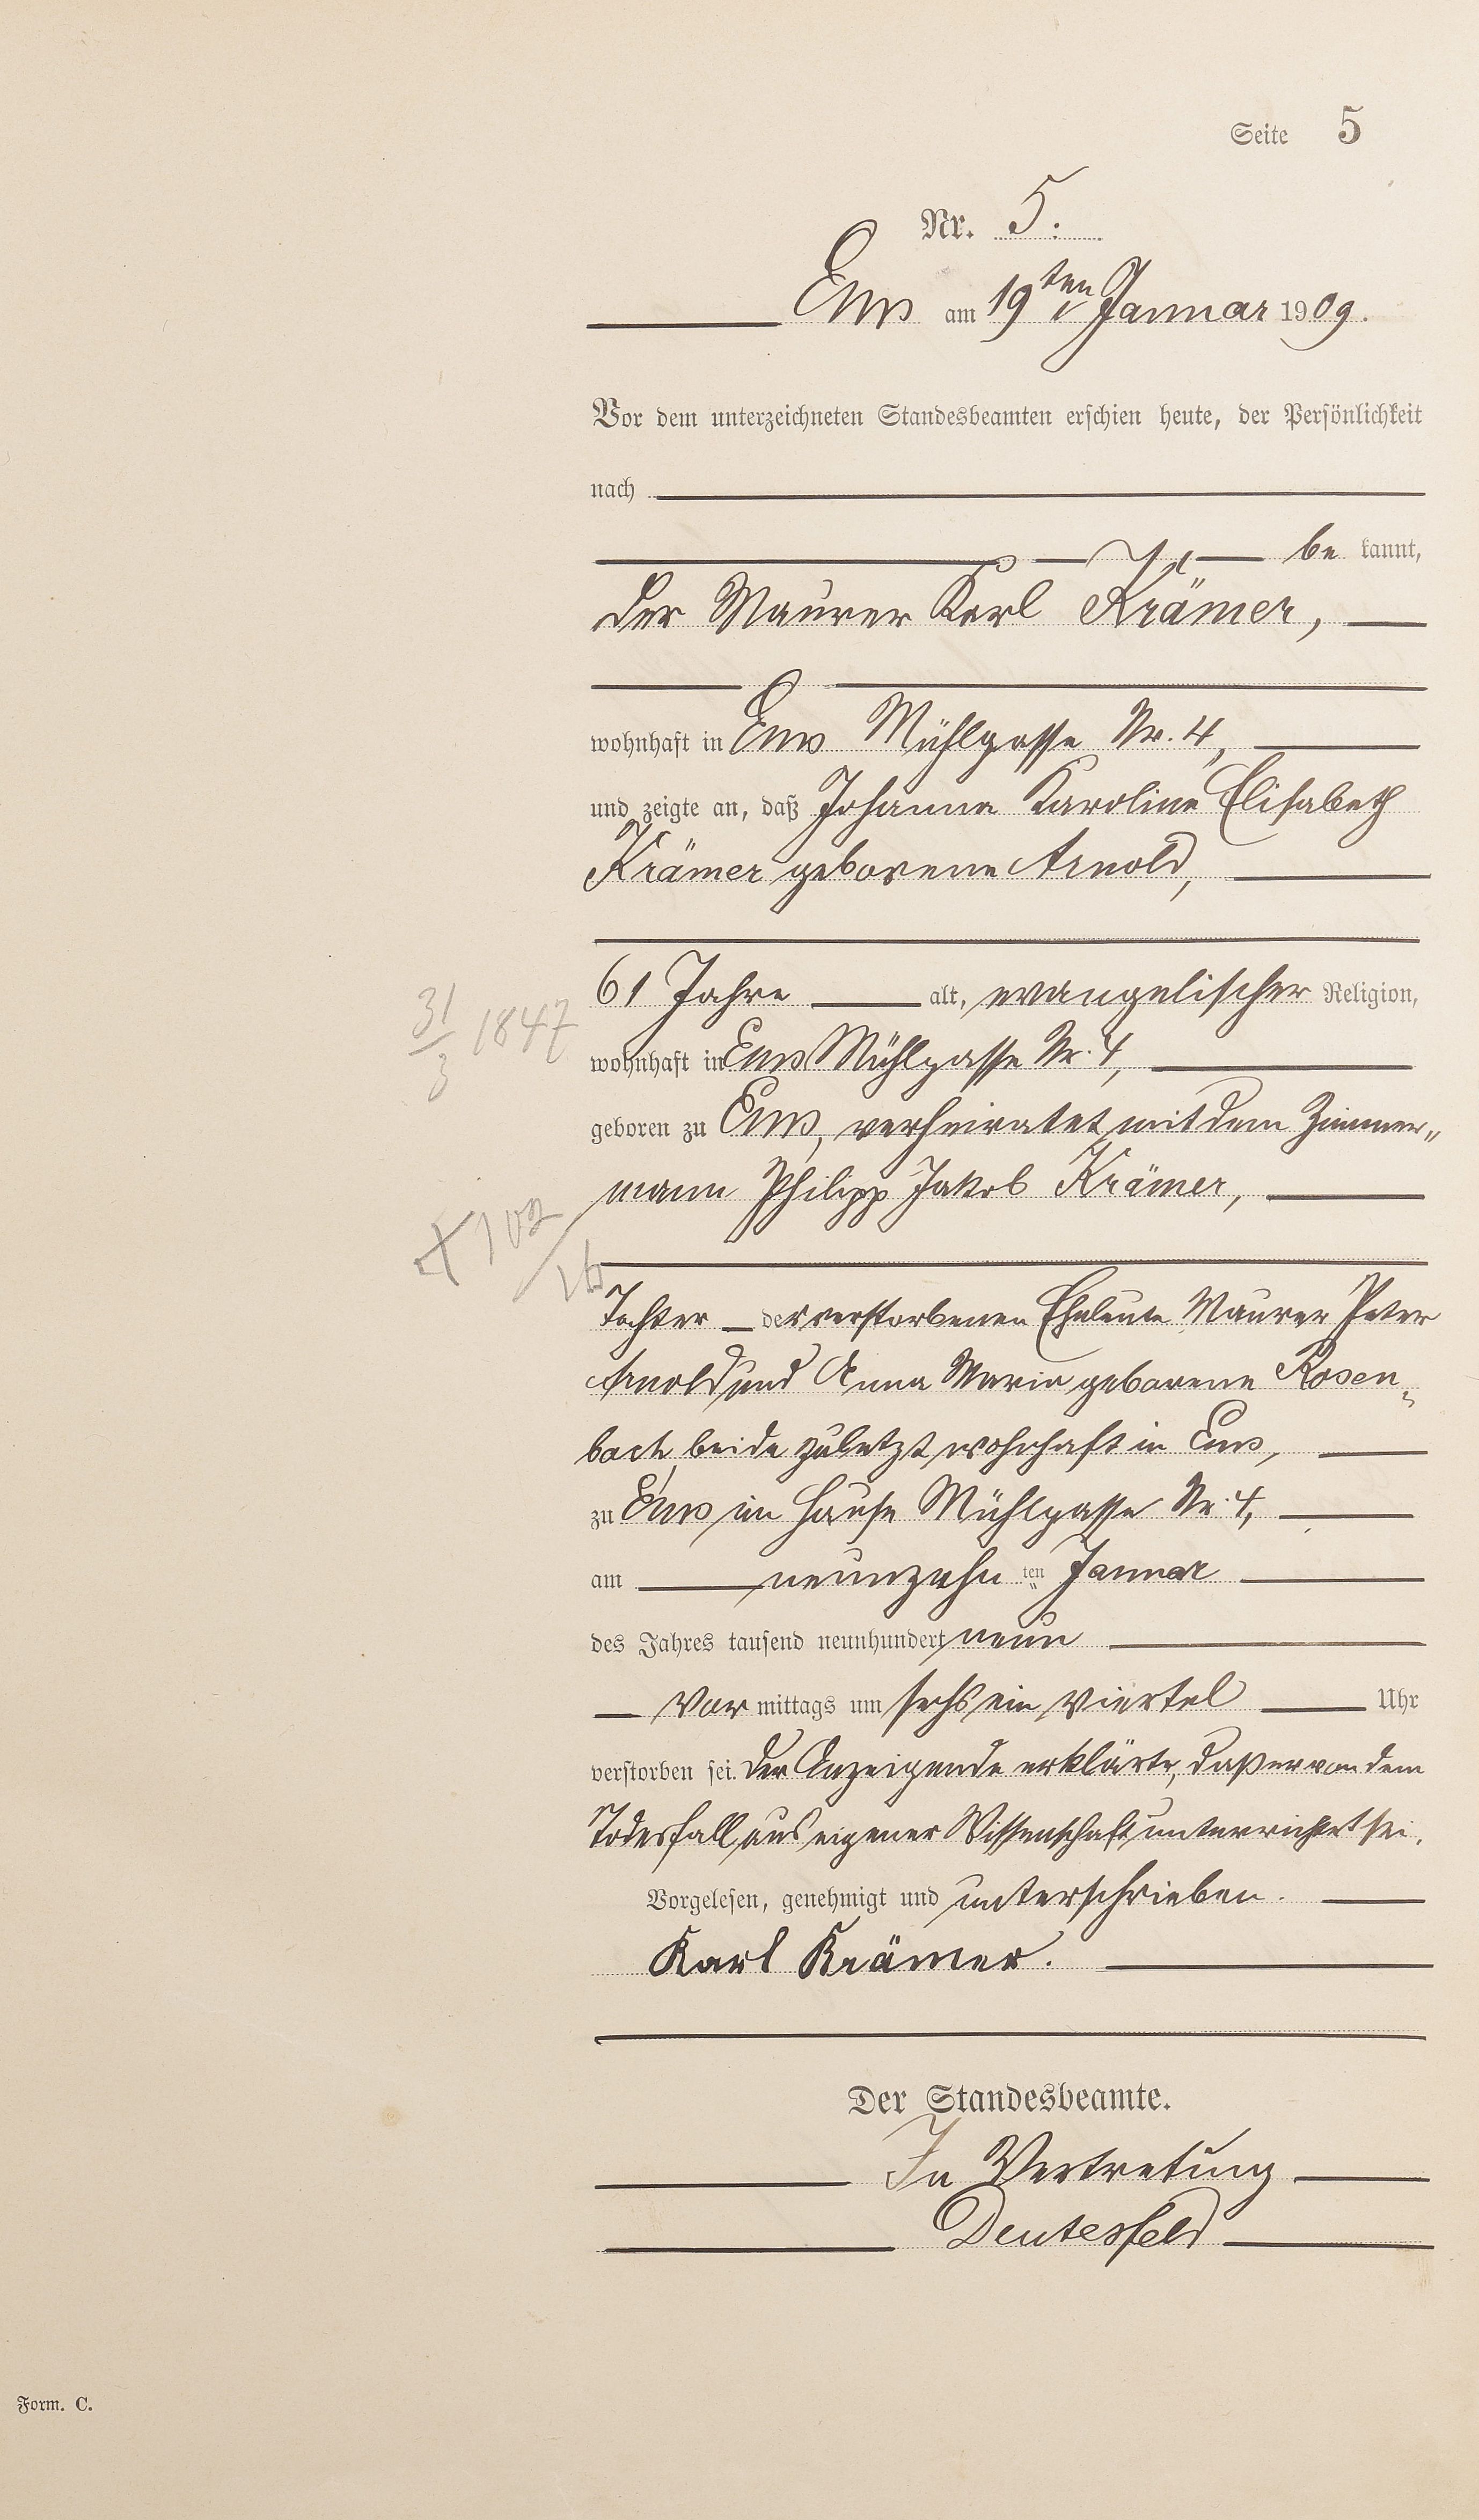 Seite 5
Nr. 5.
Ems am 19ten Januar 1909.
Vor dem unterzeichneten Standesbeamten erschien heute, der Persönlichkeit
nach
be kannt,
der Maurer Karl Krämer,
wohnhaft in Ems Mühlgasse Nr. 4,
und zeigte an, daß Johanna Karoline Elisabeth
Krämer geborene Arnold,
61 Jahre alt, evangelischer Religion,
31/3 1847
wohnhaft in Ems Mühlgasse Nr. 4,
geboren zu Ems, verheiratet mit dem Zimmer„
mann Philipp Jakob Krämer,
Tochter der verstorbenen Eheleute Maurer Peter
Arnold und Anna Maria geborene Rosen„
bach, beide zuletzt wohnhaft in Ems,
zu Ems im Hause Mühlgasse Nr. 4,
am neunzehn ten Januar
des Jahres tausend neunhundert neun
Vor mittags um sechs ein viertel Uhr
verstorben sei. Der Anzeigende erklärte, daß er von dem
Todesfall aus eigener Wissenschaft unterrichtet sei.
Vorgelesen, genehmigt und unterschrieben.
Karl Krämer.
Der Standesbeamte.
In Vertretung
Deutesfeld
Form. C.